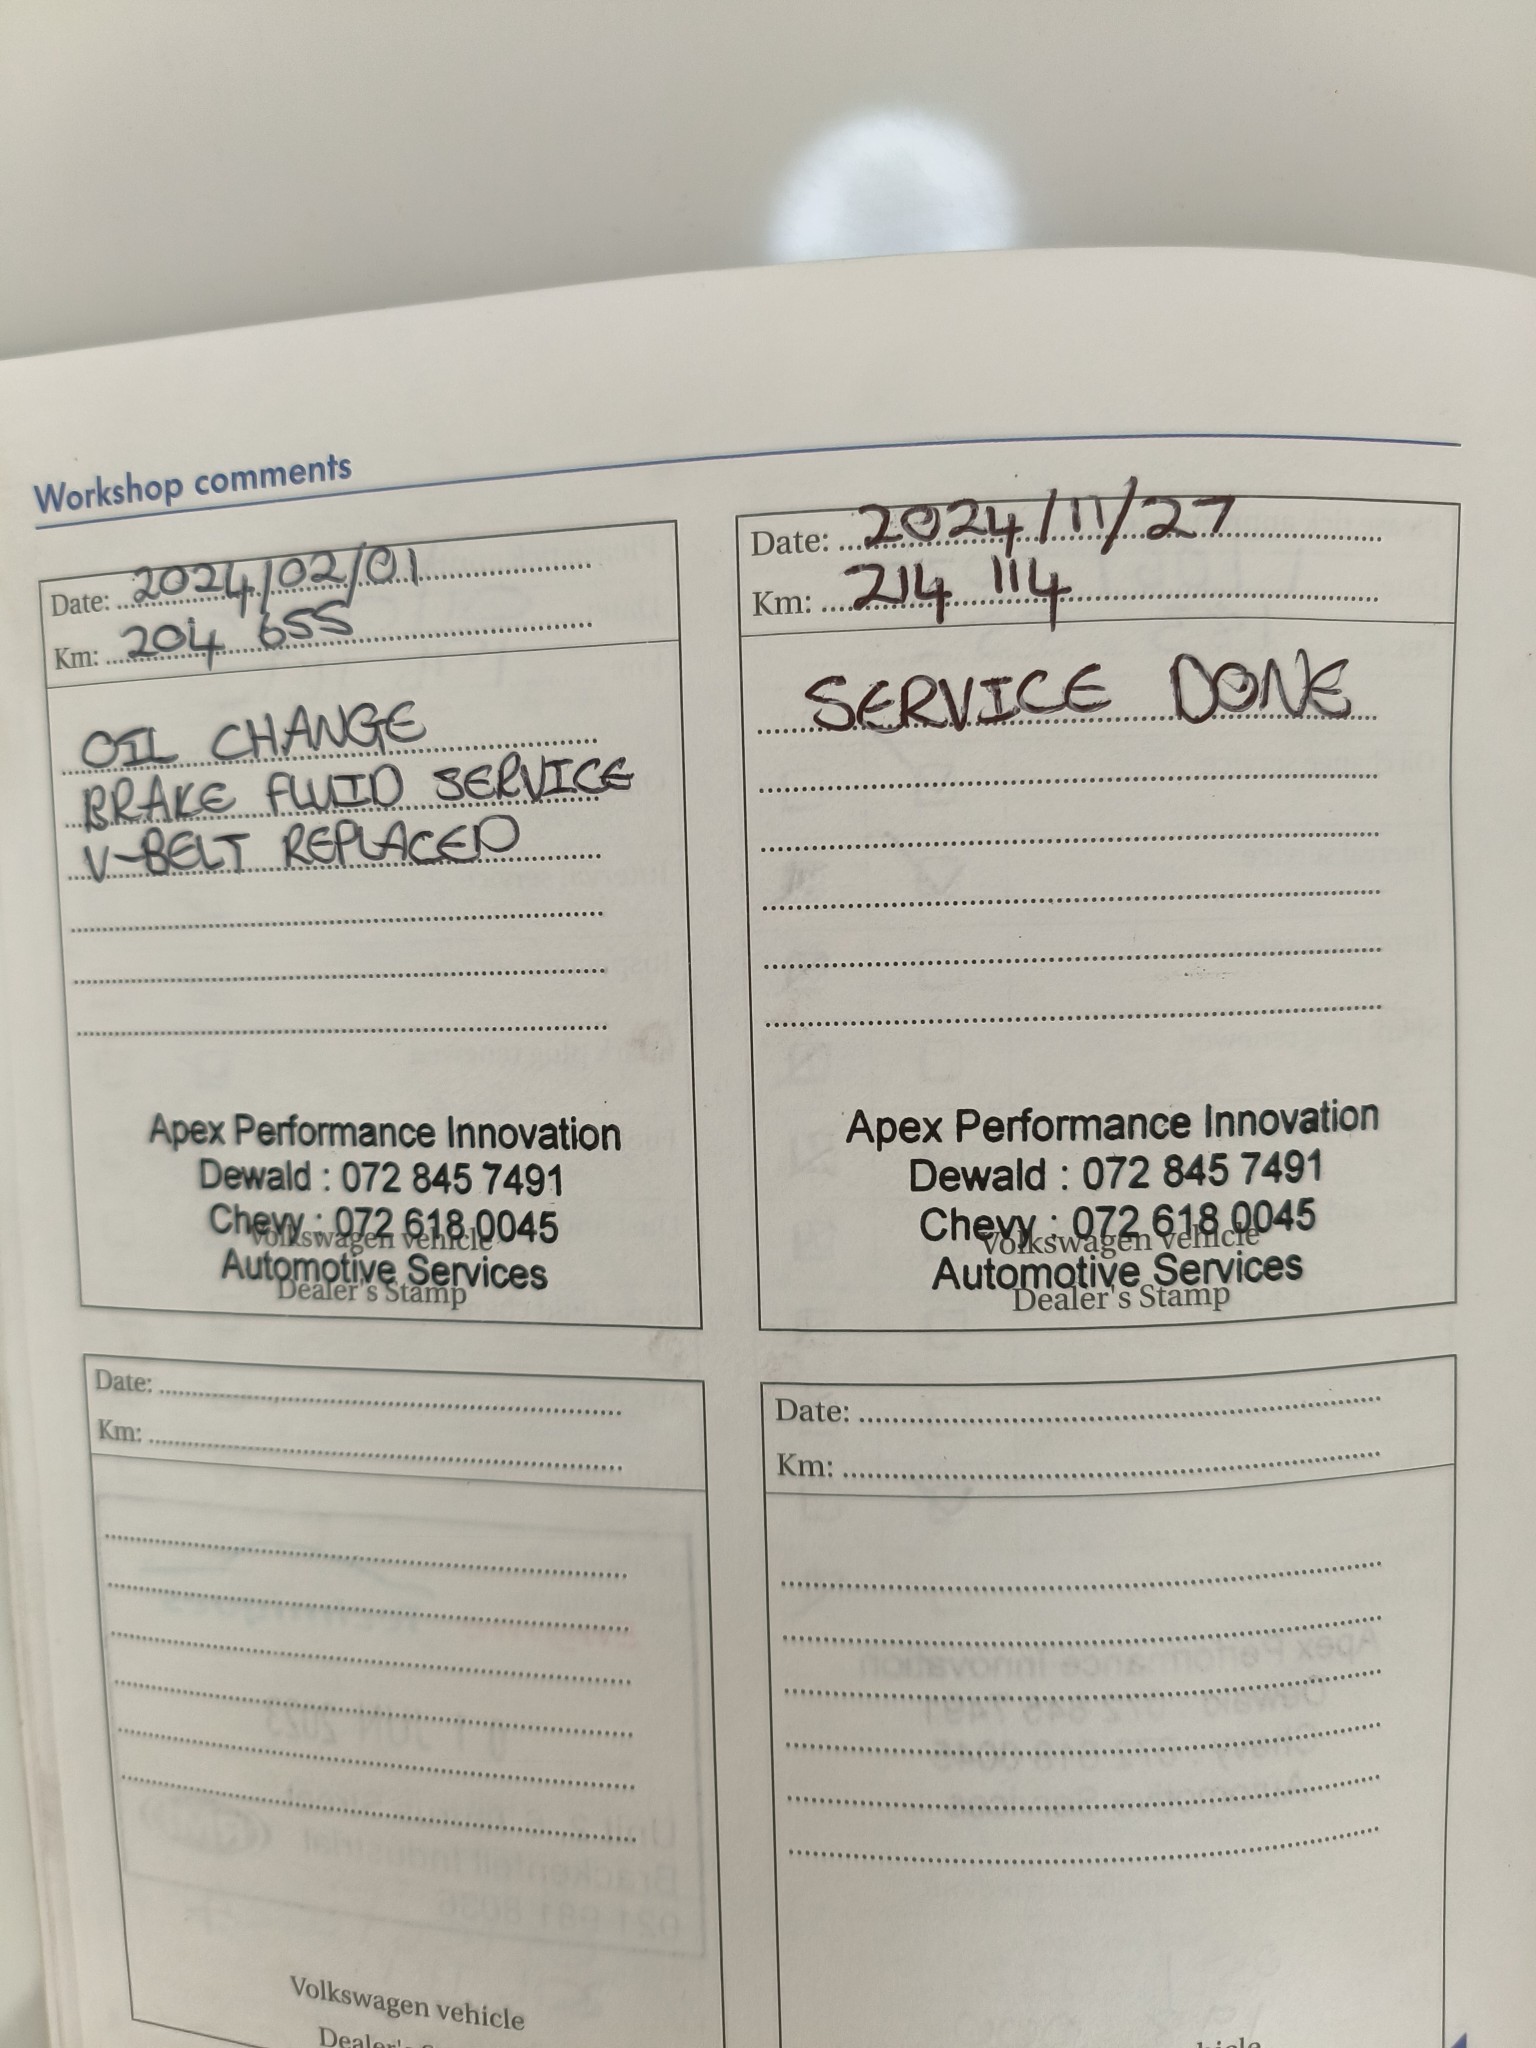 Workshop comments
Date: 2024/02/01
Km: 204 655
OIL CHANGE
BRAKE FLUID SERVICE
V-BELT REPLACED
Apex Performance Innovation
Dewald : 072 845 7491
Chevy : 072 618 0045
Volkswagen vehicle
Automotive Services
Dealer's Stamp
Date: 2024/11/27
Km: 214 114
SERVICE DONE
Apex Performance Innovation
Dewald : 072 845 7491
Chevy : 072 618 0045
Volkswagen vehicle
Automotive Services
Dealer's Stamp
Date:
Km:
Volkswagen vehicle
Date:
Km: